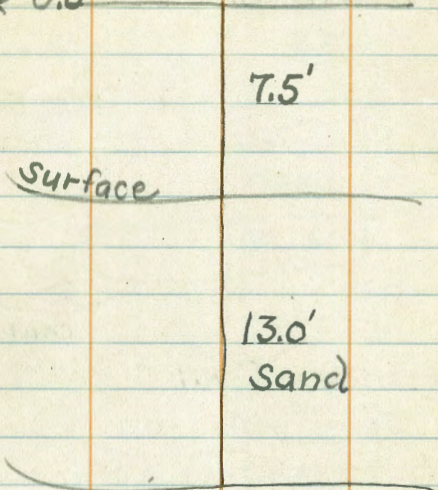 7.5'
surface
13.0'
Sand